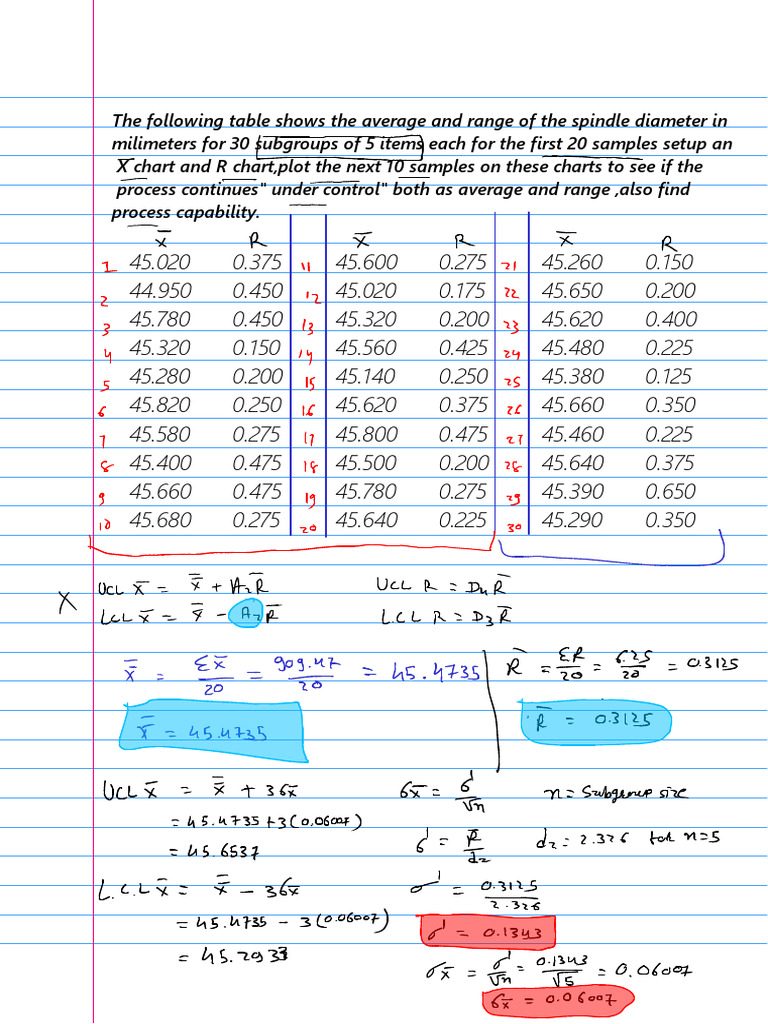 The following table shows the average and range of the spindle diameter in
milimeters for 30 subgroups of 5 items each for the first 20 samples setup an
X̅ chart and R chart,plot the next 10 samples on these charts to see if the
process continues" under control" both as average and range ,also find
process capability.
x̅ R x̅ R x̅ R
1 45.020 0.375 11 45.600 0.275 21 45.260 0.150
2 44.950 0.450 12 45.020 0.175 22 45.650 0.200
3 45.780 0.450 13 45.320 0.200 23 45.620 0.400
4 45.320 0.150 14 45.560 0.425 24 45.480 0.225
5 45.280 0.200 15 45.140 0.250 25 45.380 0.125
6 45.820 0.250 16 45.620 0.375 26 45.660 0.350
7 45.580 0.275 17 45.800 0.475 27 45.460 0.225
8 45.400 0.475 18 45.500 0.200 28 45.640 0.375
9 45.660 0.475 19 45.780 0.275 29 45.390 0.650
10 45.680 0.275 20 45.640 0.225 30 45.290 0.350
UCL x̅ = x̿ + A₂R̅ UCL R = D₄R̅
X LCL x̅ = x̿ - A₂R̅ L.CL R = D₃R̅
x̿ = Σx̅/20 = 909.47/20 = 45.4735 R̅ = ΣR/20 = 6.25/20 = 0.3125
x̿ = 45.4735 R̅ = 0.3125
UCL x̅ = x̿ + 3σx̅ σx̅ = σ'/√n n = Subgroup size
= 45.4735+3(0.06007) σ' = R̅/d₂ d₂ = 2.326 for n=5
= 45.6537
L.C.L x̅ = x̿ - 3σx̅ σ' = 0.3125/2.326
= 45.4735 - 3(0.06007) σ' = 0.1343
= 45.2933 σx̅ = σ'/√n = 0.1343/√5 = 0.06007
σx̅ = 0.06007